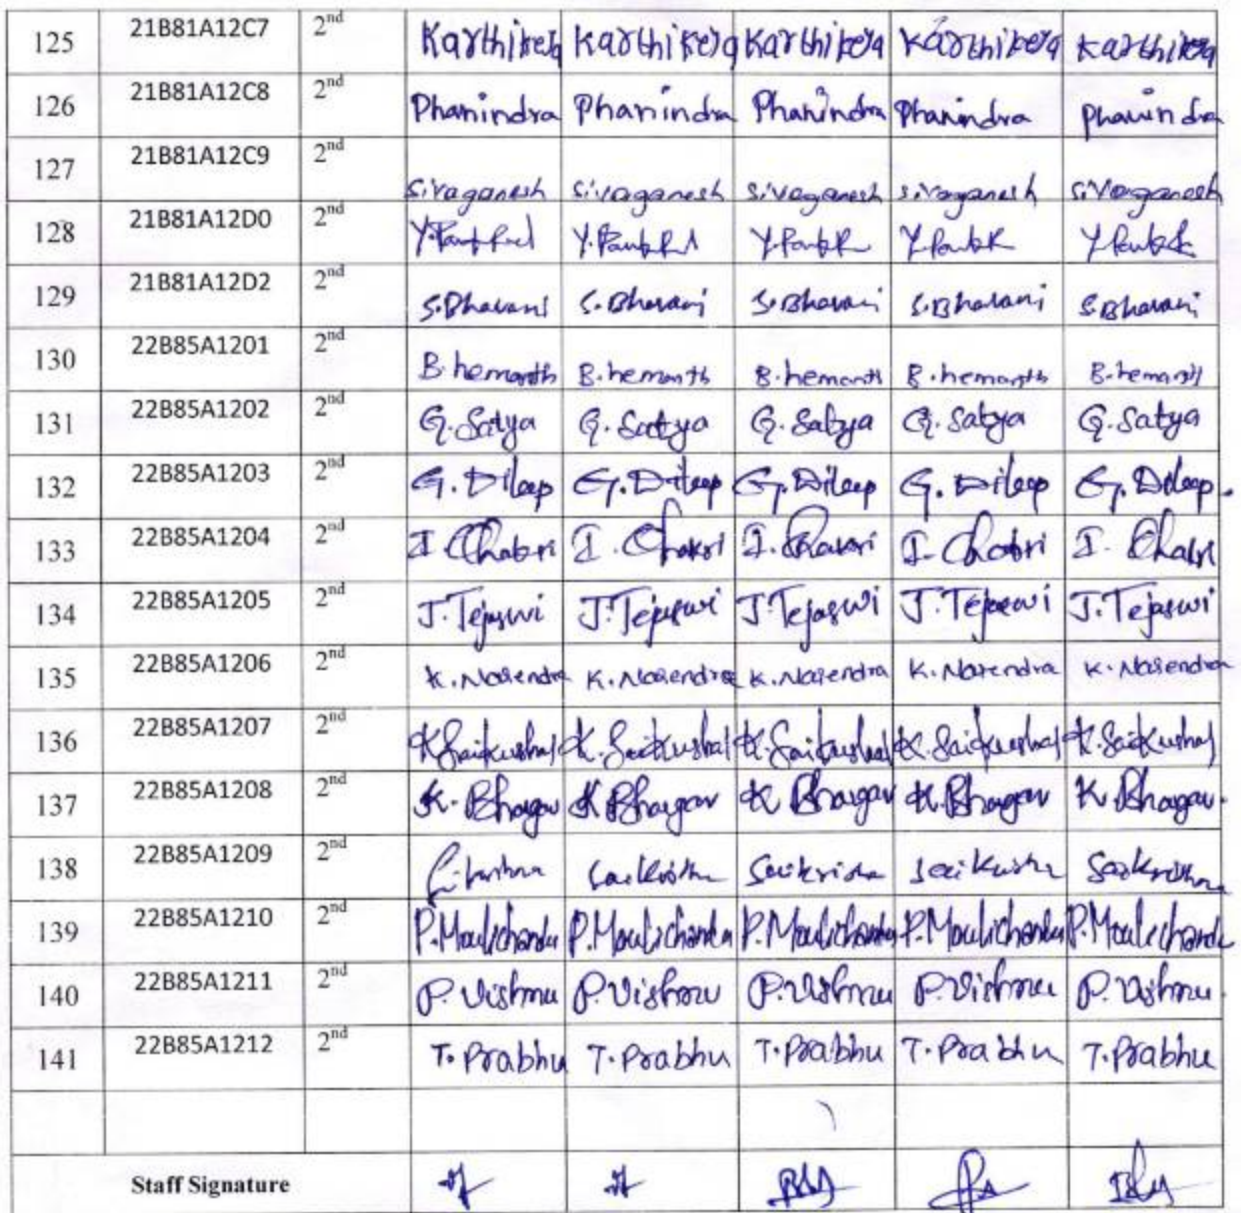 125 21B81A12C7 2nd Karthikeya Karthikeya Karthikeya Karthikeya Karthikeya
126 21B81A12C8 2nd Phanindra Phanindra Phanindra Phanindra Phanindra
127 21B81A12C9 2nd Sivaganesh Sivaganesh Sivaganesh Sivaganesh Sivaganesh
128 21B81A12D0 2nd
129 21B81A12D2 2nd S.Bhavani S.Bhavani S.Bhavani S.Bhavani S.Bhavani
130 22B85A1201 2nd B.hemanth B.hemanth B.hemanth B.hemanth B.hemanth
131 22B85A1202 2nd G.Satya G.Satya G.Satya G.Satya G.Satya
132 22B85A1203 2nd G.Dileep G.Dileep G.Dileep G.Dileep G.Dileep.
133 22B85A1204 2nd I.Chakri I.Chakri I.Chakri I.Chakri I.Chakri
134 22B85A1205 2nd J.Tejaswi J.Tejaswi J.Tejaswi J.Tejaswi J.Tejaswi
135 22B85A1206 2nd K.Narendra K.Narendra K.Narendra K.Narendra K.Narendra
136 22B85A1207 2nd K.Saikushal K.Saikushal K.Saikushal K.Saikushal K.Saikushal
137 22B85A1208 2nd K.Bhargav K.Bhargav K.Bhargav K.Bhargav K.Bhargav.
138 22B85A1209 2nd Saikrishna Saikrishna Saikrishna Saikrishna
139 22B85A1210 2nd P.Moulichandu P.Moulichandu P.Moulichandu P.Moulichandu P.Moulichandu
140 22B85A1211 2nd P.Vishnu P.Vishnu P.Vishnu P.Vishnu P.Vishnu.
141 22B85A1212 2nd T.Prabhu T.Prabhu T.Prabhu T.Prabhu T.Prabhu
Staff Signature